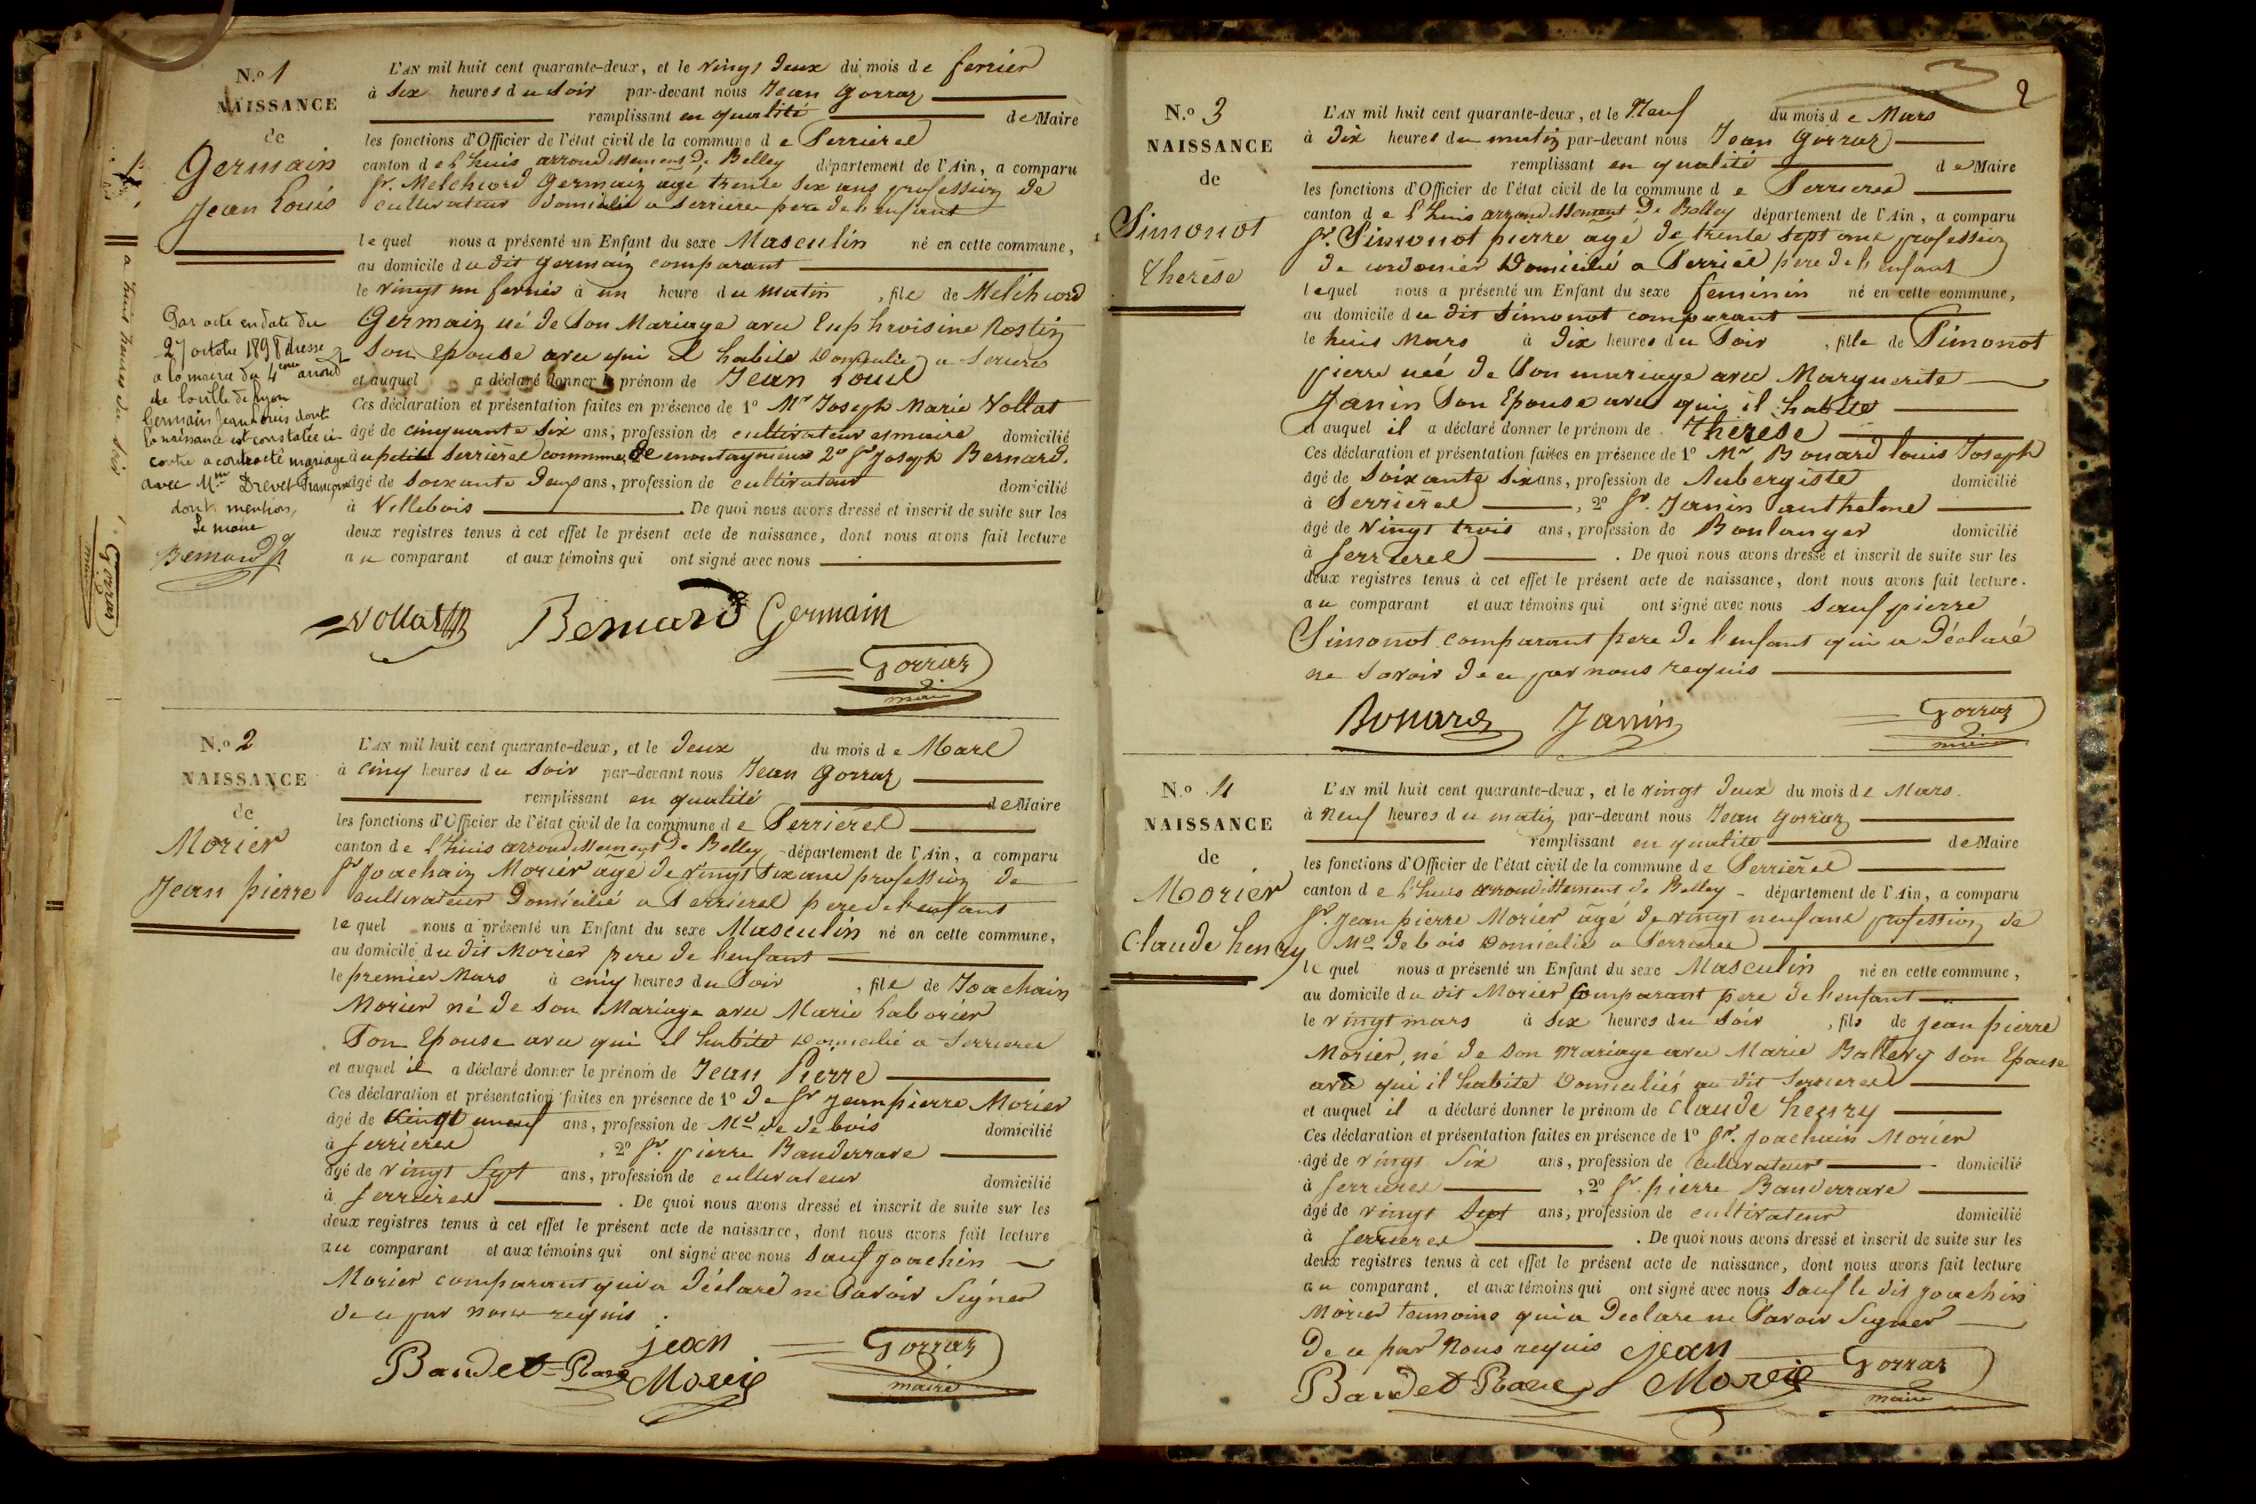 N.o 1
NAISSANCE
de
Germain
Jean Louis
Par acte en date du
27 octobre 1898 dressé
a la mairie du 4eme arrond
de la ville de Lyon
Germain Jean Louis dont
la naissance est constatée ci
contre a contracté mariage
avec Mme Drevet Françoise
dont mention,
Le maire
Bernard
a huit heures du soir
Gorraz
maire
L'AN mil huit cent quarante-deux, et le vingt deux du mois de fevrier
à Six heures du Soir par-devant nous Jean Gorraz
remplissant en qualité de Maire
les fonctions d'Officier de l'état civil de la commune de Serrieres
canton de L'huis arrondissement de Belley département de l'Ain, a comparu
Sr. Melchiord Germain agé trente six ans profession de
cultivateur domicilié a Serrieres pere de l'enfant
lequel nous a présenté un Enfant du sexe Masculin né en cette commune,
au domicile du dit Germain comparant
le vingt un fevrier à un heure du matin, fils de Melchiord
Germain né de Son Mariage avec Euphroisine Rostin
Son Epouse avec qui il habite Domicilié a Serieres
et auquel a déclaré donner le prénom de Jean Louis
Ces déclaration et présentation faites en présence de 1o Mr Joseph Marie Vollat
âgé de cinquante Six ans, profession de cultivateur domicilié
à petit Serrières commune de montagnieux 2o Sr Joseph Bernard.
âgé de Soixante Deux ans, profession de cultivateur domicilié
à Villebois . De quoi nous avons dressé et inscrit de suite sur les
deux registres tenus à cet effet le présent acte de naissance, dont nous avons fait lecture
au comparant et aux témoins qui ont signé avec nous
Vollat Bernard Germain
Gorraz
maire
N.o 2
NAISSANCE
de
Morier
Jean pierre
L'AN mil huit cent quarante-deux, et le Deux du mois de Mars
à Cinq heures du Soir par-devant nous Jean Gorraz
remplissant en qualité de Maire
les fonctions d'Officier de l'état civil de la commune de Serrieres
canton de L'huis arrondissement de Belley département de l'Ain, a comparu
Sr Joachain Morier agé de vingt Six ans profession de
cultivateur Domicilié a Serrieres pere de l'enfant
lequel nous a présenté un Enfant du sexe Masculin né en cette commune,
au domicile du dit Morier pere de l'enfant
le premier Mars à cinq heures du Soir, fils de Joachain
Morier né de Son Mariage avec Marie Laborier
Son Epouse avec qui il habite Domicilié a Serrieres
et auquel il a déclaré donner le prénom de Jean Pierre
Ces déclaration et présentation faites en présence de 1o de Sr Jean pierre Morier
âgé de vingt neuf ans, profession de Md de bois domicilié
à Serrieres , 2o Sr pierre Bauderrave
âgé de vingt Sept ans, profession de cultivateur domicilié
à Serrieres . De quoi nous avons dressé et inscrit de suite sur les
deux registres tenus à cet effet le présent acte de naissance, dont nous avons fait lecture
au comparant et aux témoins qui ont signé avec nous Sauf Joachin
Morier comparant qui a déclaré ne Savoir Signer
de ce par nous requis.
Baudet-Rave jean Morie Gorraz
maire
2
N.o 3
NAISSANCE
de
Simonot
Therèse
L'AN mil huit cent quarante-deux, et le Neuf du mois de Mars
à Dix heures du matin par-devant nous Jean Gorraz
remplissant en qualité de Maire
les fonctions d'Officier de l'état civil de la commune de Serrieres
canton de L'huis arrondissement de Belley département de l'Ain, a comparu
Sr. Simonot pierre agé de trente Sept ans profession
de cordonier Domicilié a Serriere pere de l'enfant
lequel nous a présenté un Enfant du sexe feminin né en cette commune,
au domicile du dit Simonot comparant
le huis Mars à Dix heures du Soir, fille de Simonot
pierre née de Son mariage avec Marguerite
Janin Son Epouse avec qui il habite
et auquel il a déclaré donner le prénom de Therese
Ces déclaration et présentation faites en présence de 1o Mr Bonard louis Joseph
âgé de Soixante Six ans, profession de Aubergiste domicilié
à Serrieres , 2o Sr. Janin anthelme
âgé de vingt trois ans, profession de Boulanger domicilié
à Serrieres . De quoi nous avons dressé et inscrit de suite sur les
deux registres tenus à cet effet le présent acte de naissance, dont nous avons fait lecture.
au comparant et aux témoins qui ont signé avec nous Sauf pierre
Simonot comparant pere de l'enfant qui a Déclaré
ne Savoir de ce par nous requis
Bonard Janin Gorraz
maire
N.o 4
NAISSANCE
de
Morier
Claude henry
L'AN mil huit cent quarante-deux, et le vingt Deux du mois de Mars.
à Neuf heures du matin par-devant nous Jean Gorraz
remplissant en qualité de Maire
les fonctions d'Officier de l'état civil de la commune de Serrieres
canton de L'huis arrondissement de Belley département de l'Ain, a comparu
Sr. Jean pierre Morier agé de vingt neuf ans profession de
Md de bois Domicilié a Serrieres
lequel nous a présenté un Enfant du sexe Masculin né en cette commune,
au domicile du dit Morier Comparant pere de l'enfant
le vingt mars à Six heures du Soir, fils de Jean pierre
Morier, né de Son mariage avec Marie Ballery Son Epouse
avec qui il habite Domiciliés au dit Serrieres
et auquel il a déclaré donner le prénom de Claude henry
Ces déclaration et présentation faites en présence de 1o Sr. Joachain Morier
âgé de vingt Six ans, profession de cultivateur domicilié
à Serrieres , 2o Sr. pierre Bauderrave
âgé de vingt Sept ans, profession de cultivateur domicilié
à Serrieres . De quoi nous avons dressé et inscrit de suite sur les
deux registres tenus à cet effet le présent acte de naissance, dont nous avons fait lecture
au comparant, et aux témoins qui ont signé avec nous Sauf le dit Joachin
Morier temoins qui a Declare ne Savoir Signer
De ce par Nous requis
Baudet Rave jean Morie Gorraz
maire